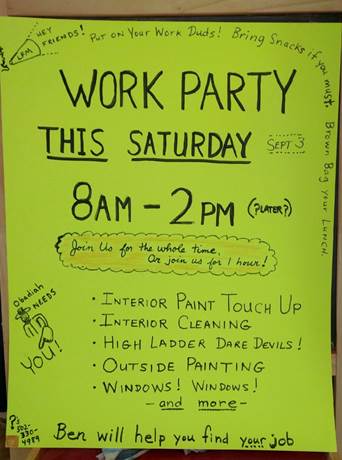 LFM
HEY FRIENDS! Put on Your Work Duds! Bring Snacks if you must. Brown Bag your Lunch
WORK PARTY
THIS SATURDAY SEPT 3
8AM - 2PM (?LATER?)
Join Us for the whole time.
Or join us for 1 hour!
Obadiah
NEEDS
YOU!
• INTERIOR PAINT TOUCH UP
• INTERIOR CLEANING
• HIGH LADDER DARE DEVILS!
• OUTSIDE PAINTING
• WINDOWS! WINDOWS!
- and more -
P's
502-
330-
4989
Ben will help you find your job